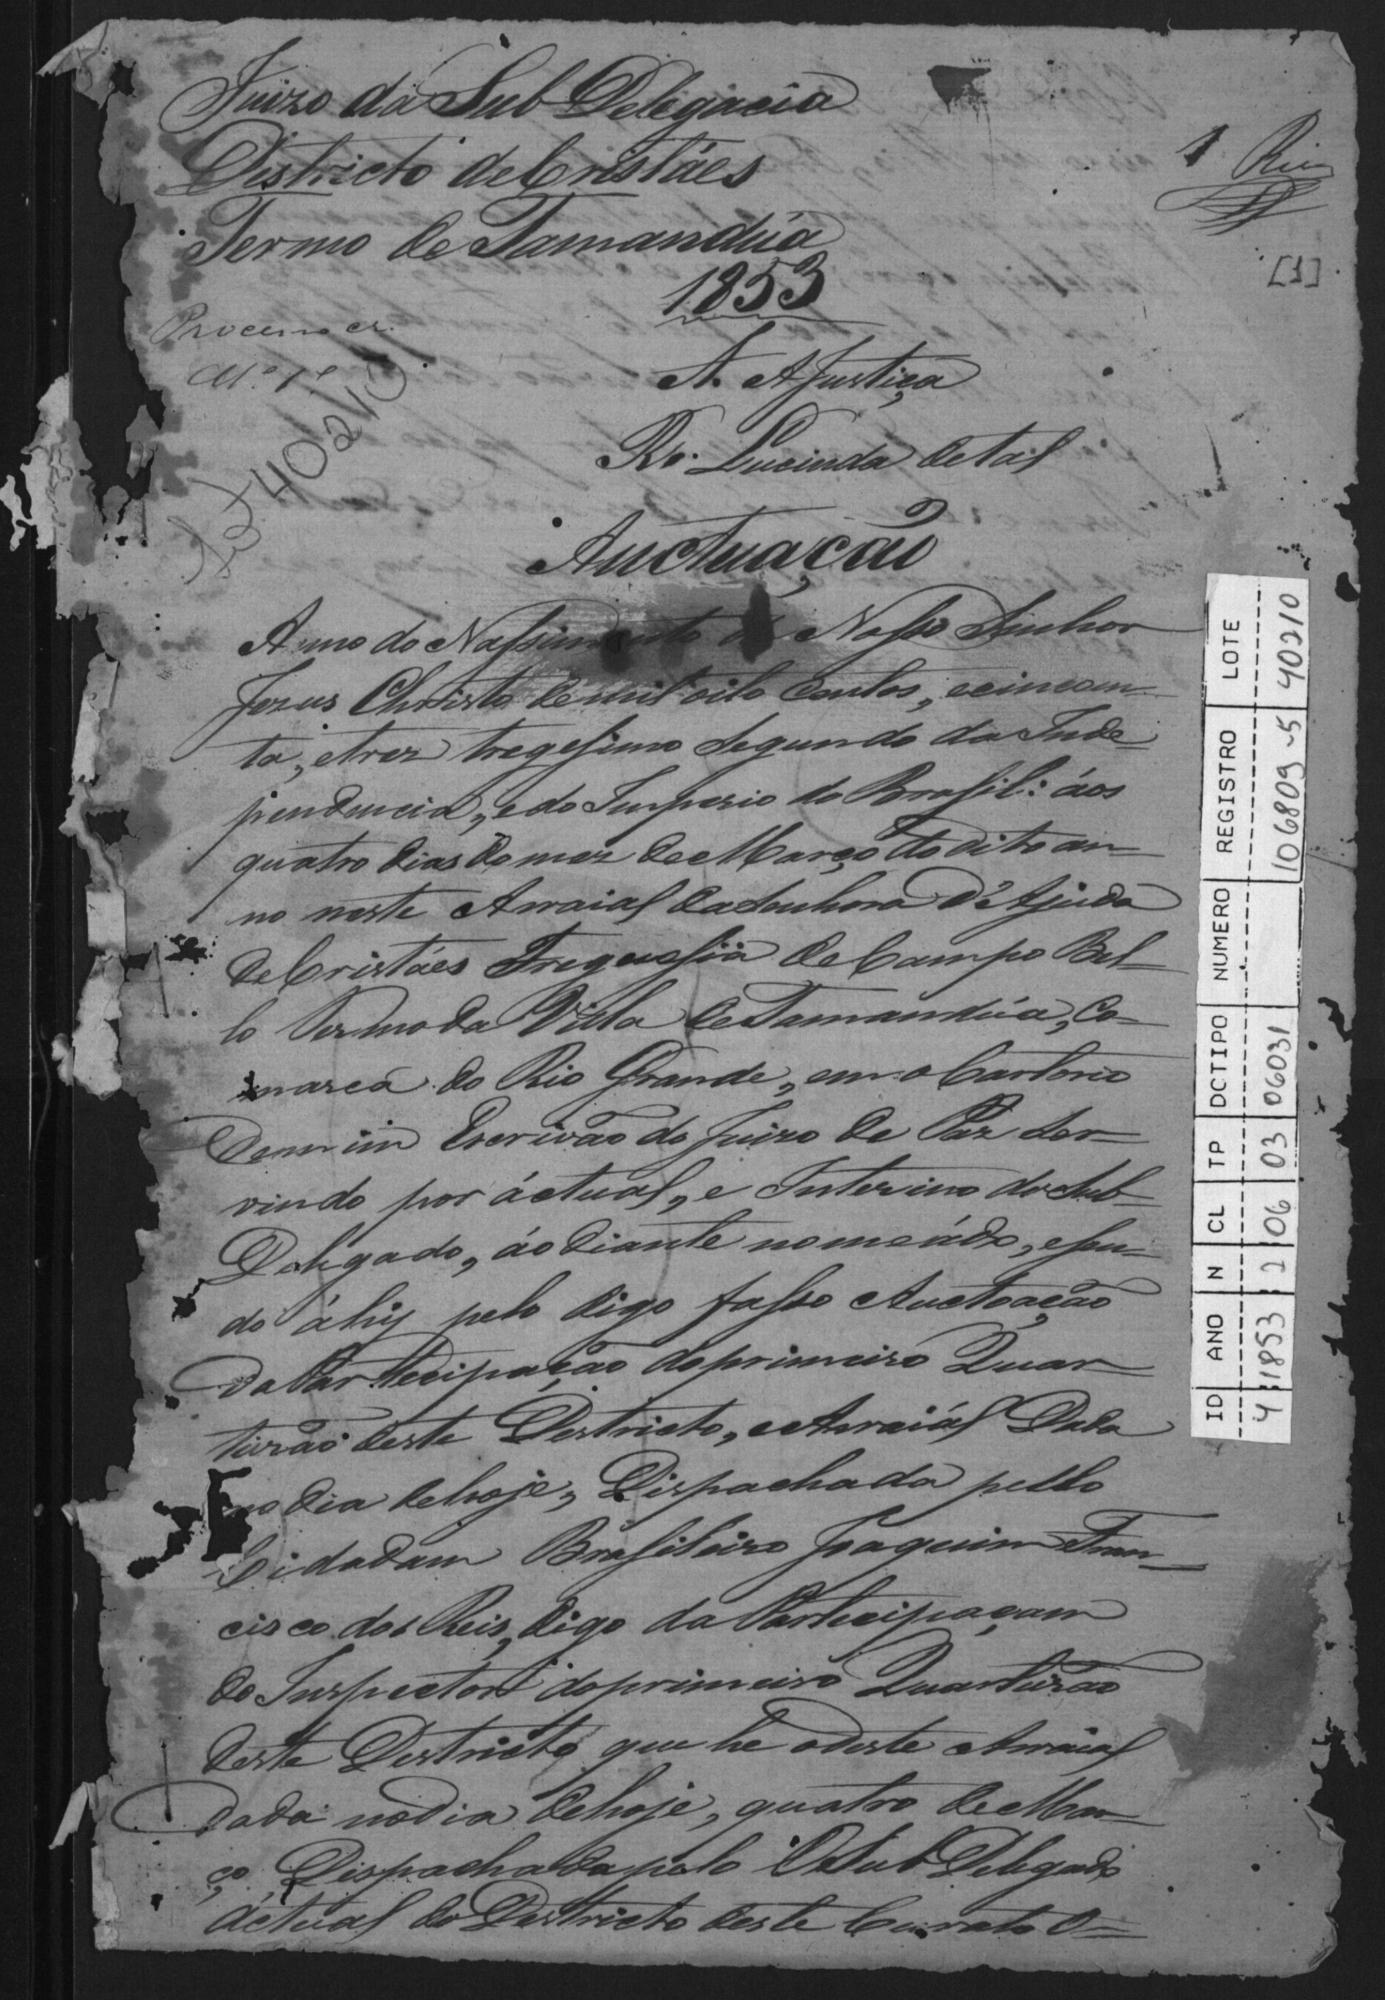 Juizo da Sub Delegacia
Districto de Cristáes
Termo de Tamandúa
1853
1 Reis
[1]
Processo cr.
Mº 1º
Lot 40210
A. A Justiça
Ro. Lucinda de tal
Auctuação
Anno do Nassimento de Nosso Senhor
Jezus Christo de mil oito centos, ecincoen-
ta, etrez tregesimo segundo da Inde-
pendencia, e do Imperio do Brasil: áos
quatro dias do mez de Março do dito an-
no neste Arraial da Senhora d'Ajuda
de Cristáes Freguesia de Campo Bel-
lo Termo da Villa de Tamandúa, Co-
marca do Rio Grande, em o Cartorio
de mim Escrivão do Juizo de Paz Ser-
vindo por áctual, e Interino do Sub-
Delegado, áo diante nomeádo, esen-
do áhy pelo digo fasso Auctoação
da Partecipação do primeiro Quar-
tirão deste Destricto, e Arraiál Dada
no dia de hoje, Dispachada pello
Cidadam Brasileiro Joaquim Fran-
cisco dos Reis, digo da Partecipaçam
do Inspector do primeiro Quartirão
deste Destricto que he o deste Arraial
dada no dia de hoje, quatro de Mar-
ço, Dispachada pelo O Sub Delegado
áctual do Destricto deste Curato O-
ID ANO N CL TP DCTIPO NUMERO REGISTRO LOTE
4 1853 2 06 03 06031 106809-5 40210